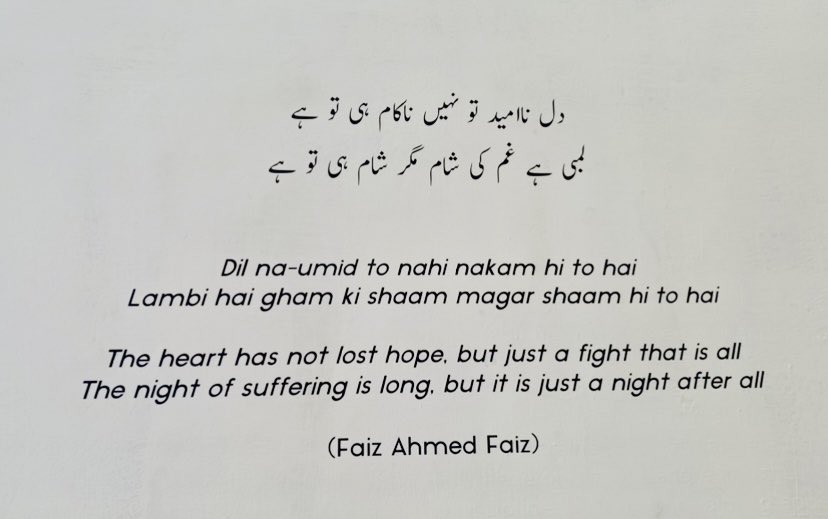 دل ناامید تو نہیں ناکام ہی تو ہے
لمبی ہے غم کی شام مگر شام ہی تو ہے
Dil na-umid to nahi nakam hi to hai
Lambi hai gham ki shaam magar shaam hi to hai
The heart has not lost hope, but just a fight that is all
The night of suffering is long, but it is just a night after all
(Faiz Ahmed Faiz)